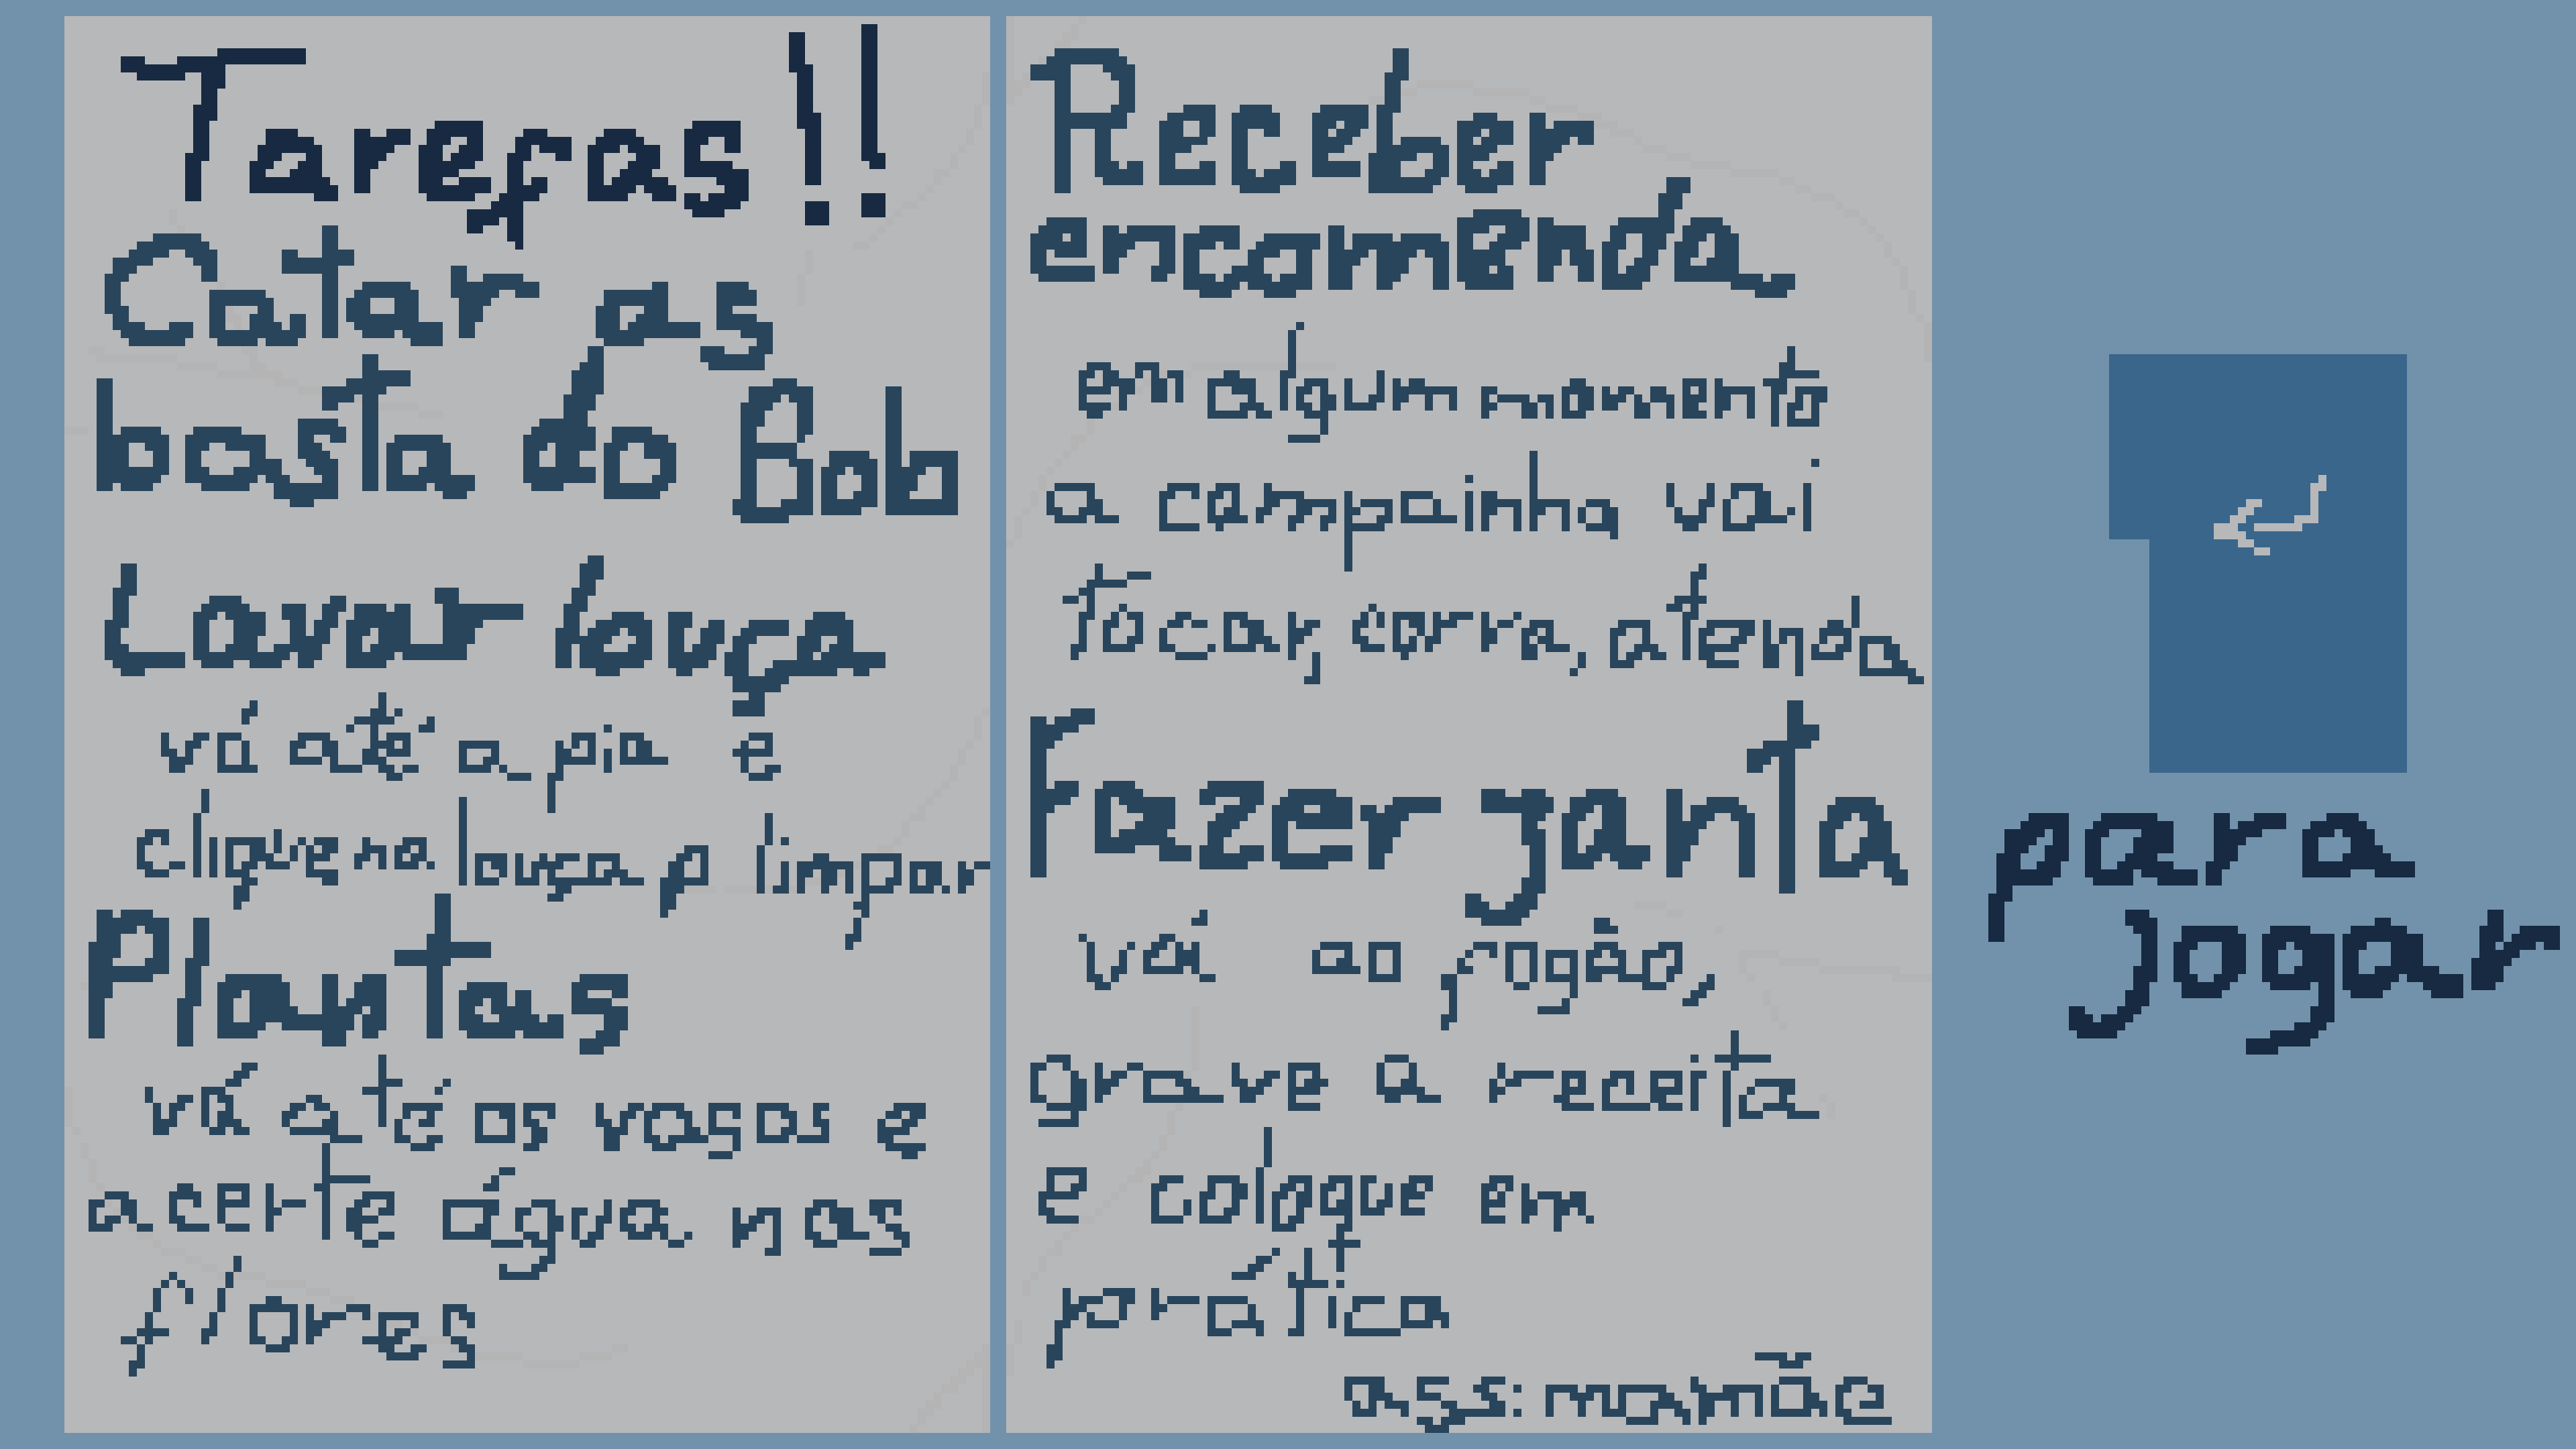 Tarefas!!
Catar as
bosta do Bob
Lavar louça
vá até a pia e
clique na louça p limpar
Plantas
vá até os vasos e
acerte água nas
flores
Receber
encomenda
em algum momento
a campainha vai
tocar, corra, atenda
Fazer janta
vá ao fogão,
grave a receita
e coloque em
prática
ass: mamãe
para
jogar